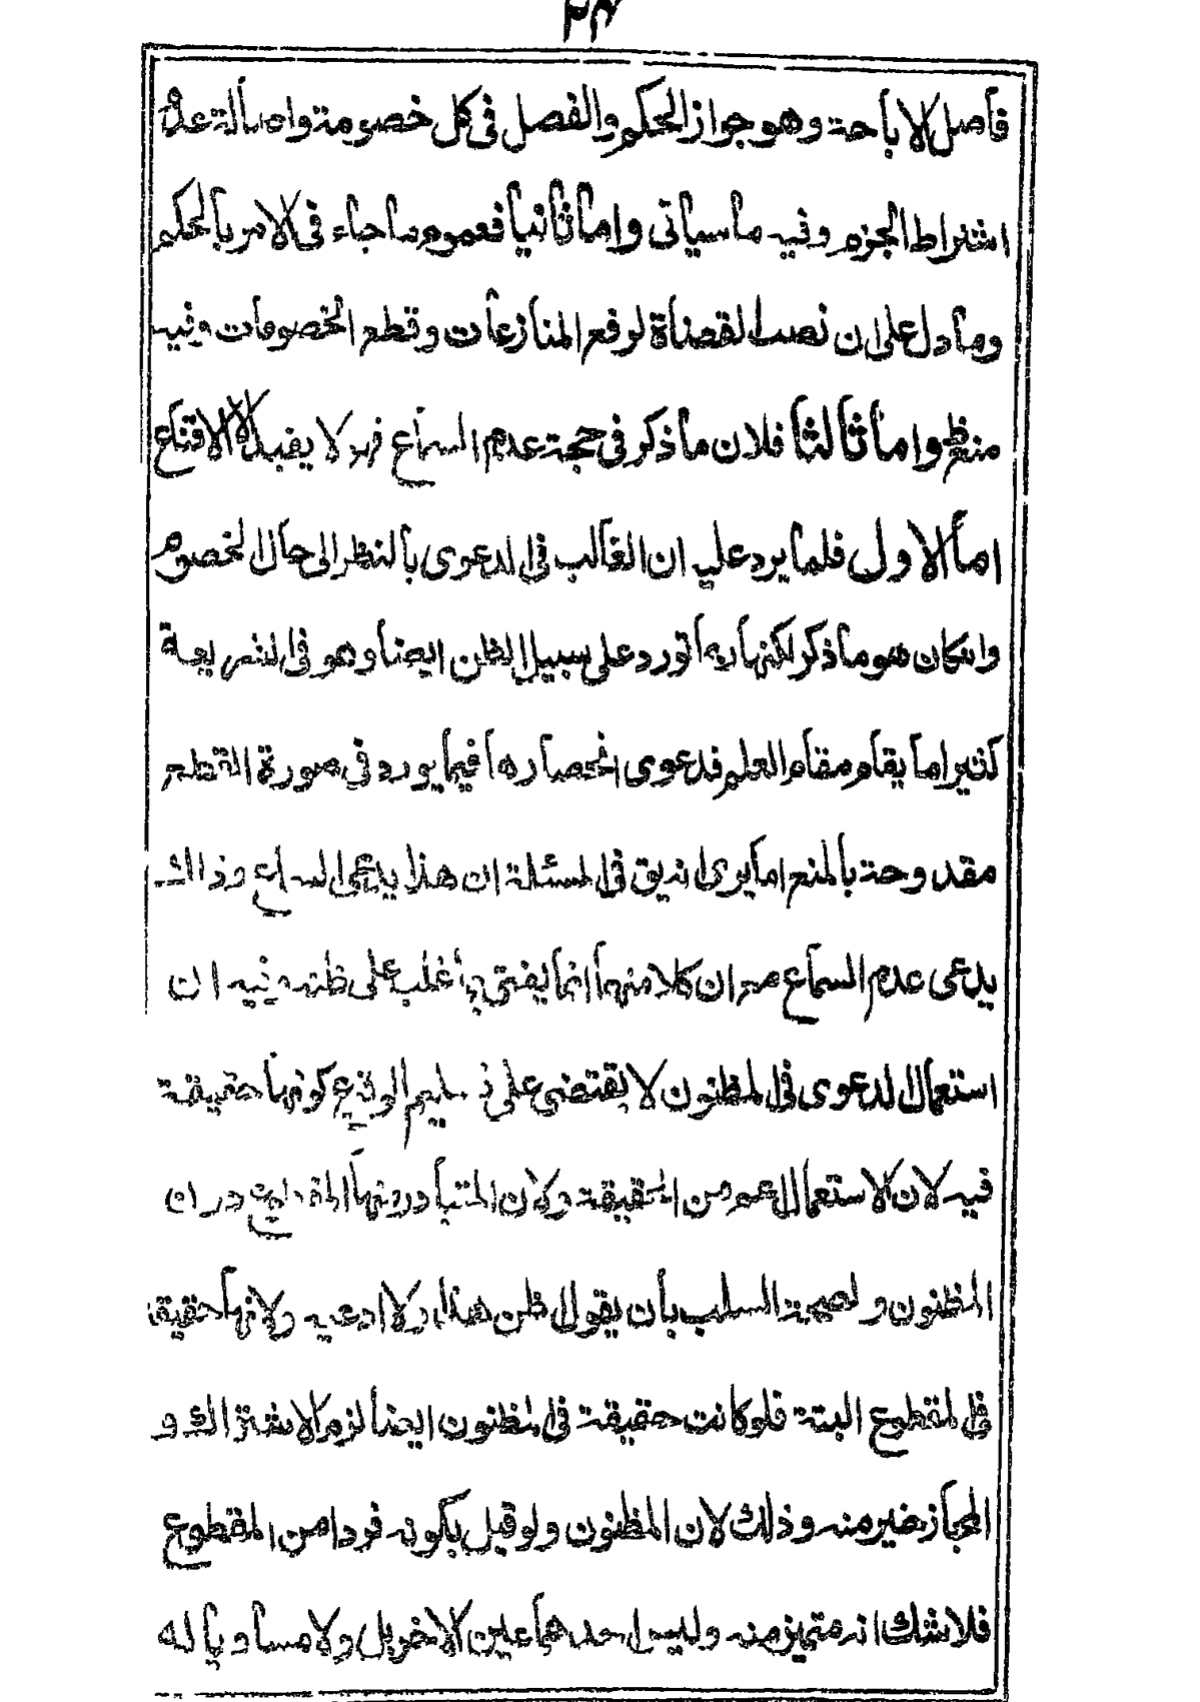 ٢٤
فأصل الاباحة وهو جواز الحكم والفصل في كل خصومة واصالة عدم
اشتراط الجزم وفيه ما سيأتي واما ثانيا فعموم ما جاء في الامر بالحكم
وما دل على ان نصب القضاة لرفع المنازعات وقطع الخصومات وفيه
منع واما ثالثا فلان ما ذكر في حجة عدم السماع فهو لا يفيد الا الاقناع
اما الاول فلما يرد عليه ان الغالب في الدعوى بالنظر الى حال الخصوم
وان كان هو ما ذكر لكنها ربما تورد على سبيل الظن ايضا وهو في الشريعة
كثيرا ما يقام مقام العلم فدعوى انحصارها فيما يورد في صورة القطع
مقدوحة بالمنع اما يرى انه يق في المسئلة ان هذا يدعى السماع وذالك
يدعى عدم السماع مع ان كلا منهما انما يفتي بما غلب على ظنه وفيه ان
استعمال الدعوى في المظنون لا يقتضى على تسليم الوقوع كونها حقيقة
فيه لان الاستعمال اعم من الحقيقة ولان المتبادر منها المقطوع دون
المظنون ولصحة السلب بأن يقول اظن هذا ولا ادعيه ولانها حقيقة
في المقطوع البتة فلو كانت حقيقة في المظنون ايضا لزم الاشتراك و
المجاز خير منه وذلك لان المظنون ولو قيل بكونه فردا من المقطوع
فلا شك انه متميز منه وليس احدهما عين الاخر بل ولا مساويا له